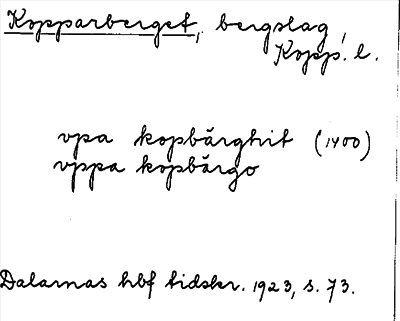 Kopparberget, bergslag,
Kopp. l.
vpa kopbärghit (1400)
vppa kopbärgo
Dalarnas hbf tidskr. 1923, s. 73.